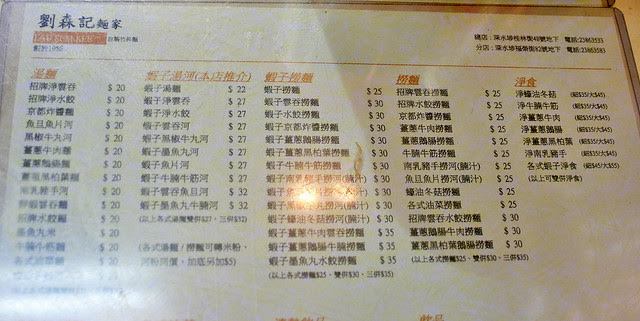 劉森記麵家
LAU SUM KEE
自製竹昇麵
創於1956
總店：深水埗桂林街48號地下 電話:23863533
分店：深水埗福榮街82號地下 電話:23863583
湯麵
招牌淨雲吞 $ 20
招牌淨水餃 $ 20
京都炸醬麵 $ 30
魚旦魚片河 $ 20
黑椒牛丸河 $ 20
薑蔥牛肉麵 $ 20
薑蔥鵝腸麵 $ 20
薑蔥黑柏葉麵 $ 20
南乳豬手河 $ 20
鮮蝦雲吞麵 $ 20
招牌水餃麵 $ 20
墨魚丸米 $ 20
牛腩牛筋麵 $ 20
各式油菜麵 $ 20
蝦子湯河(本店推介)
蝦子湯麵 $ 22
蝦子淨雲吞 $ 27
蝦子淨水餃 $ 27
蝦子雲吞河 $ 27
蝦子黑椒牛丸河 $ 27
蝦子墨魚丸河 $ 27
蝦子魚片河 $ 27
蝦子牛腩牛筋河 $ 27
蝦子雲吞魚旦河 $ 32
蝦子墨魚丸牛腩河 $ 32
(以上各式湯麵雙併$27﹑三併$32)
(各式湯麵 / 撈麵可轉米粉﹑
河粉同價，加底另加$5)
蝦子撈麵
蝦子撈麵 $ 25
蝦子雲吞撈麵 $ 30
蝦子水餃撈麵 $ 30
蝦子京都炸醬撈麵 $ 30
蝦子薑蔥鵝腸撈麵 $ 30
蝦子薑蔥黑柏葉撈麵 $ 30
蝦子牛腩牛筋撈麵 $ 30
蝦子南乳豬手撈河(腩汁) $ 30
蝦子魚旦魚片撈河(腩汁) $ 30
蝦子黑椒牛丸撈河(腩汁) $ 30
蝦子蠔油冬菇撈河(腩汁) $ 30
蝦子薑蔥牛肉雲吞撈麵 $ 35
蝦子薑蔥鵝腸牛腩撈麵 $ 35
蝦子墨魚丸水餃撈麵 $ 35
(以上各式撈麵$25﹑雙併$30﹑三併$35)
撈麵
招牌雲吞撈麵 $ 25
招牌水餃撈麵 $ 25
京都炸醬撈麵 $ 25
薑蔥牛肉撈麵 $ 25
薑蔥鵝腸撈麵 $ 25
牛腩牛筋撈麵 $ 25
南乳豬手撈河(腩汁) $ 25
魚旦魚片撈河(腩汁) $ 25
蠔油冬菇撈麵 $ 25
各式油菜撈麵 $ 25
招牌雲吞水餃撈麵 $ 30
薑蔥鵝腸牛腩撈麵 $ 30
薑蔥黑柏葉鵝腸撈麵 $ 30
(以上各式撈麵$25﹑雙併$30﹑三併$35)
淨食
淨蠔油冬菇 (細$35/大$45)
淨牛腩牛筋 (細$35/大$45)
淨薑蔥牛肉 (細$35/大$45)
淨薑蔥鵝腸 (細$35/大$45)
淨薑蔥黑柏葉 (細$35/大$45)
淨南乳豬手 (細$35/大$45)
各式蝦子淨食 (細$45/大$55)
(以上可雙併淨食)